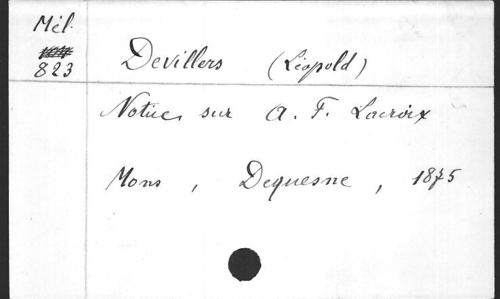 Mél.
823
Devillers (Léopold)
Notice sur A. F. Lacroix
Mons, Dequesne, 1875